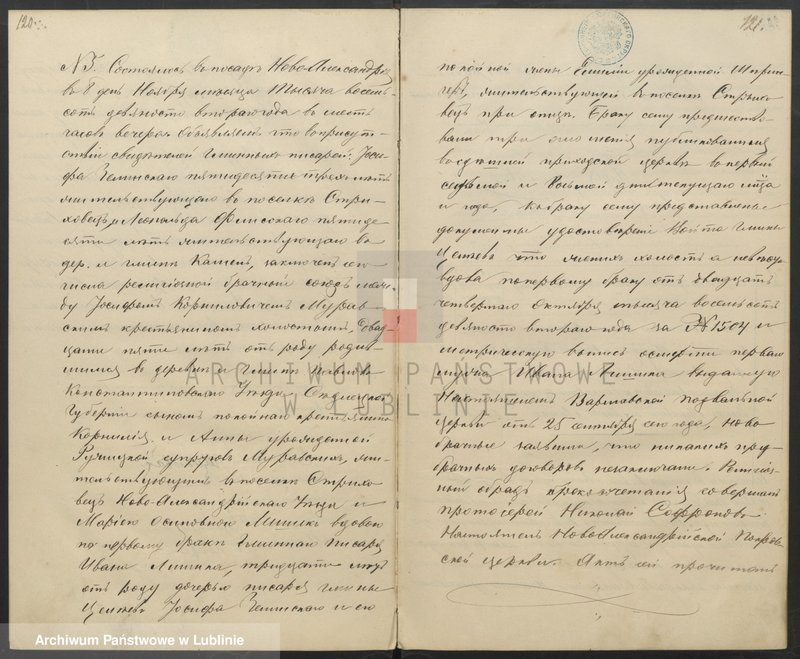 120
№ 5. Состоялось въ посадѣ Ново-Александрiи
въ 8 день Ноября мѣсяца Тысяча восемь-
сотъ девяносто втораго года въ шесть
часовъ вечера. Объявляемъ что въ присут-
ствiи свидѣтелей Гминныхъ писарей: Iоси-
фа Гелинскаго пятидесяти трехъ лѣтъ
жительствующаго въ поселкѣ Стри-
ховецъ, и Леопольда пятиде
сяти лѣтъ жительствующаго въ
дер. и гминѣ заключенъ сего
числа религiозный брачный союзъ меж-
ду Iосифомъ Корниловичемъ Мурав
скимъ крестьяниномъ холостымъ, двад-
цати пяти лѣтъ отъ роду родив-
шимся въ деревнѣ и гминѣ
Константиновскаго Уѣзда Сѣдлецкой
Губернiи сыномъ покойнаго крестьянина
Корнилiя и Анны урожденной
Ручицкой супруговъ Муравскихъ, жи-
тельствующимъ въ поселкѣ Стрихо-
вецъ Ново-Александрiйскаго Уѣзда и
Марiею Осиповною Лишикъ вдовою
по первому бракѣ Гминнаго писаря
Ивана Лишика, тридцати лѣтъ
отъ роду дочерью писаря гмины
Целеевъ Iосифа Гелинскаго и его
121
покойной жены Емилiи урожденной Шприн-
геръ, жительствующей въ поселкѣ Стрихо
вецъ при отцѣ. Браку сему предшество-
вали три оглашенiя публикованныя
въ здѣшной приходской церквѣ въ первый
седьмой и восьмой дни текущаго м-ца
и года. Къ браку сему представлены
документы удостовѣренiе Войта Гмины
Целеевъ что женихъ холостъ а невѣста
вдова по первому браку отъ двадцать
четвертаго Октября тысяча восемьсотъ
девяносто втораго года за № 1504 и
метрическую выпись о смерти перваго
мужа Ивана Лишика выданную
Настоятелемъ Варшавской подвальной
церкви отъ 25 сентября сего года. Ново-
брачные заявили, что никакихъ пред-
брачныхъ договоровъ незаключали.
ный обрядъ бракосочетанiя совершилъ
протоiерей Николай Софроновъ
Настоятель Новоалександрiйской Покров
ской церкви. Актъ сей прочитанъ
ARCHIWUM PAŃSTWOWE
W LUBLINIE
Archiwum Państwowe w Lublinie